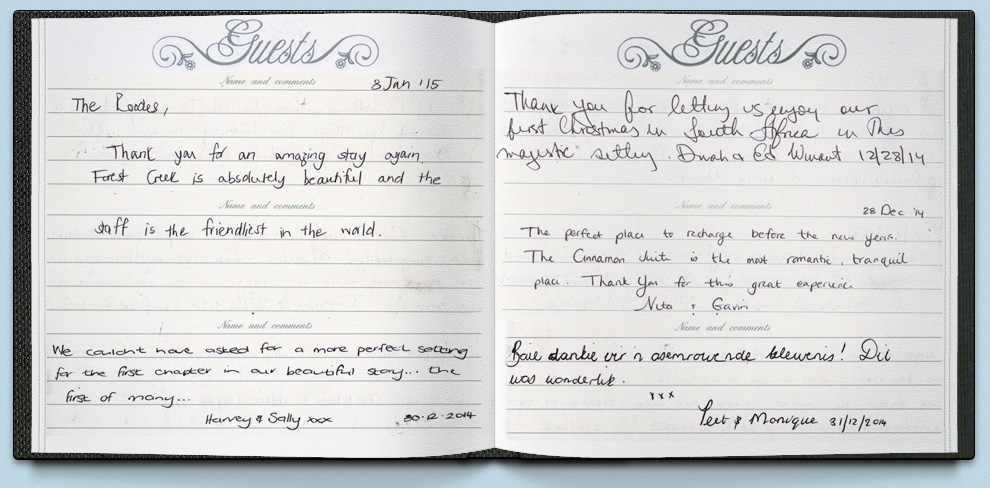 Guests
Name and comments
8 Jan '15
The Roodes,
Thank you for an amazing stay again.
Forest Creek is absolutely beautiful and the
Name and comments
staff is the friendliest in the world.
Name and comments
We couldn't have asked for a more perfect setting
for the first chapter in our beautiful story... the
first of many...
Harvey & Sally xxx 30·12·2014
Guests
Name and comments
Thank you for letting us enjoy our
first Christmas in South Africa in this
majestic setting. & Ed 12/28/14
Name and comments
28 Dec '14
The perfect place to recharge before the new year.
The Cinnamon Suite is the most romantic, tranquil
place. Thank You for this great experience
Nita & Gavin
Name and comments
Baie dankie vir 'n asemrowende belewenis! Dit
was wonderlik.
xxx
& Monique 31/12/2014